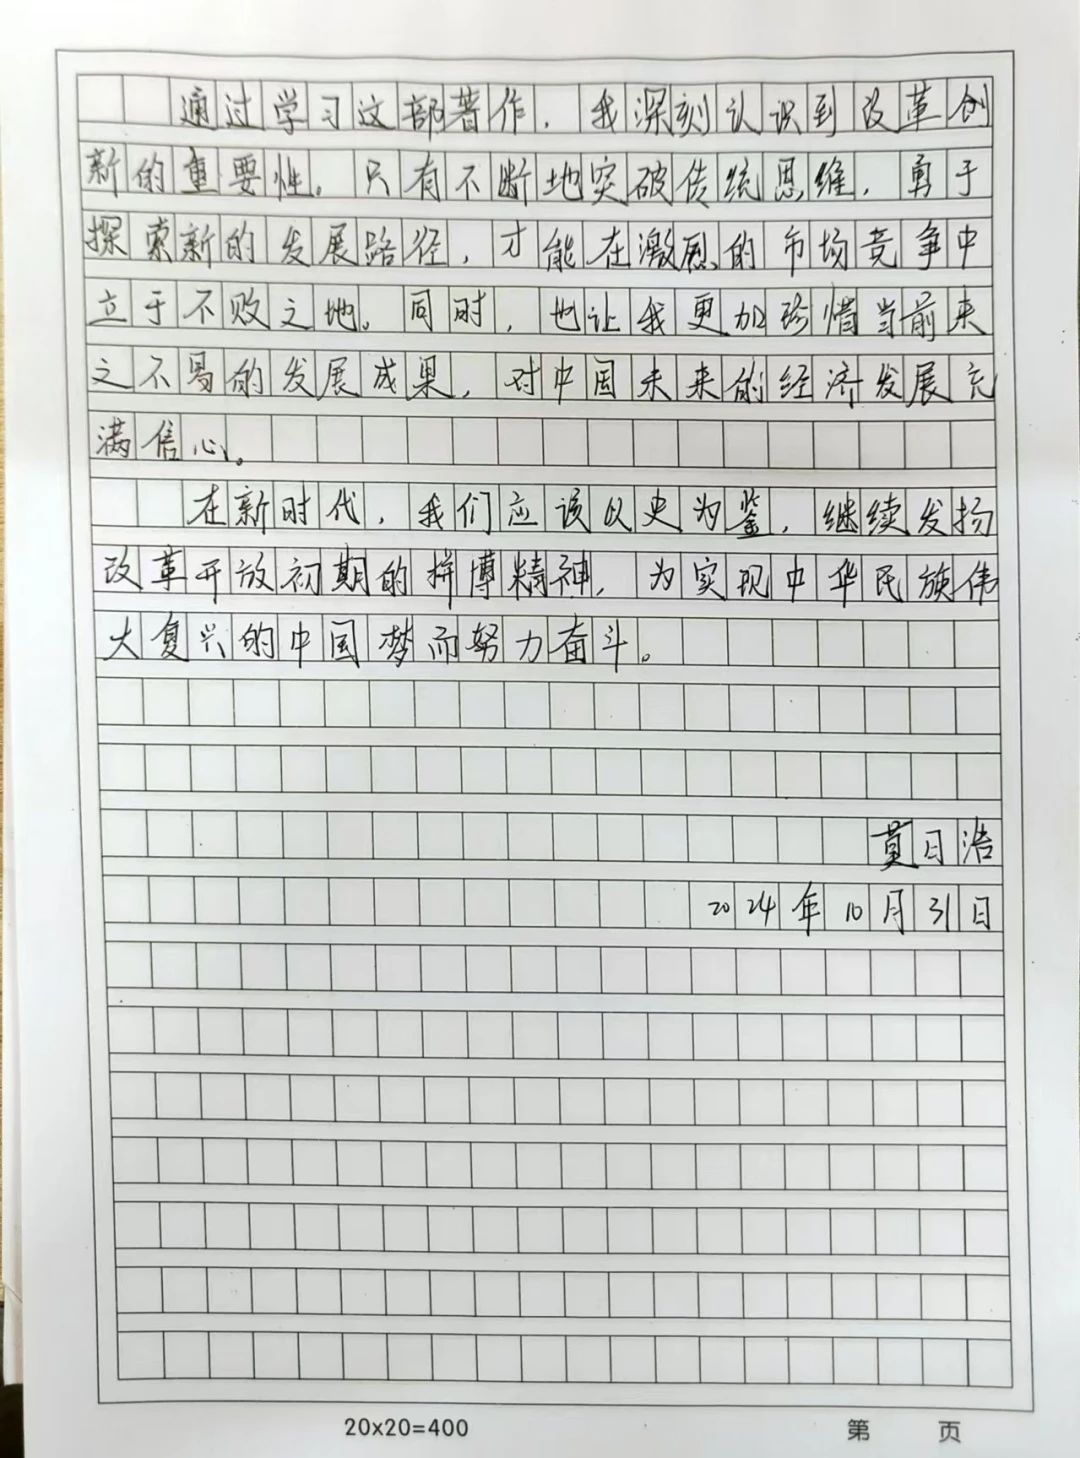 通过学习这部著作，我深刻认识到改革创
新的重要性。只有不断地突破传统思维，勇于
探索新的发展路径，才能在激烈的市场竞争中
立于不败之地。同时，也让我更加珍惜当前来
之不易的发展成果，对中国未来的经济发展充
满信心。
在新时代，我们应该以史为鉴，继续发扬
改革开放初期的拼博精神，为实现中华民族伟
大复兴的中国梦而努力奋斗。
莫日浩
2024年10月31日
20×20=400 第 页